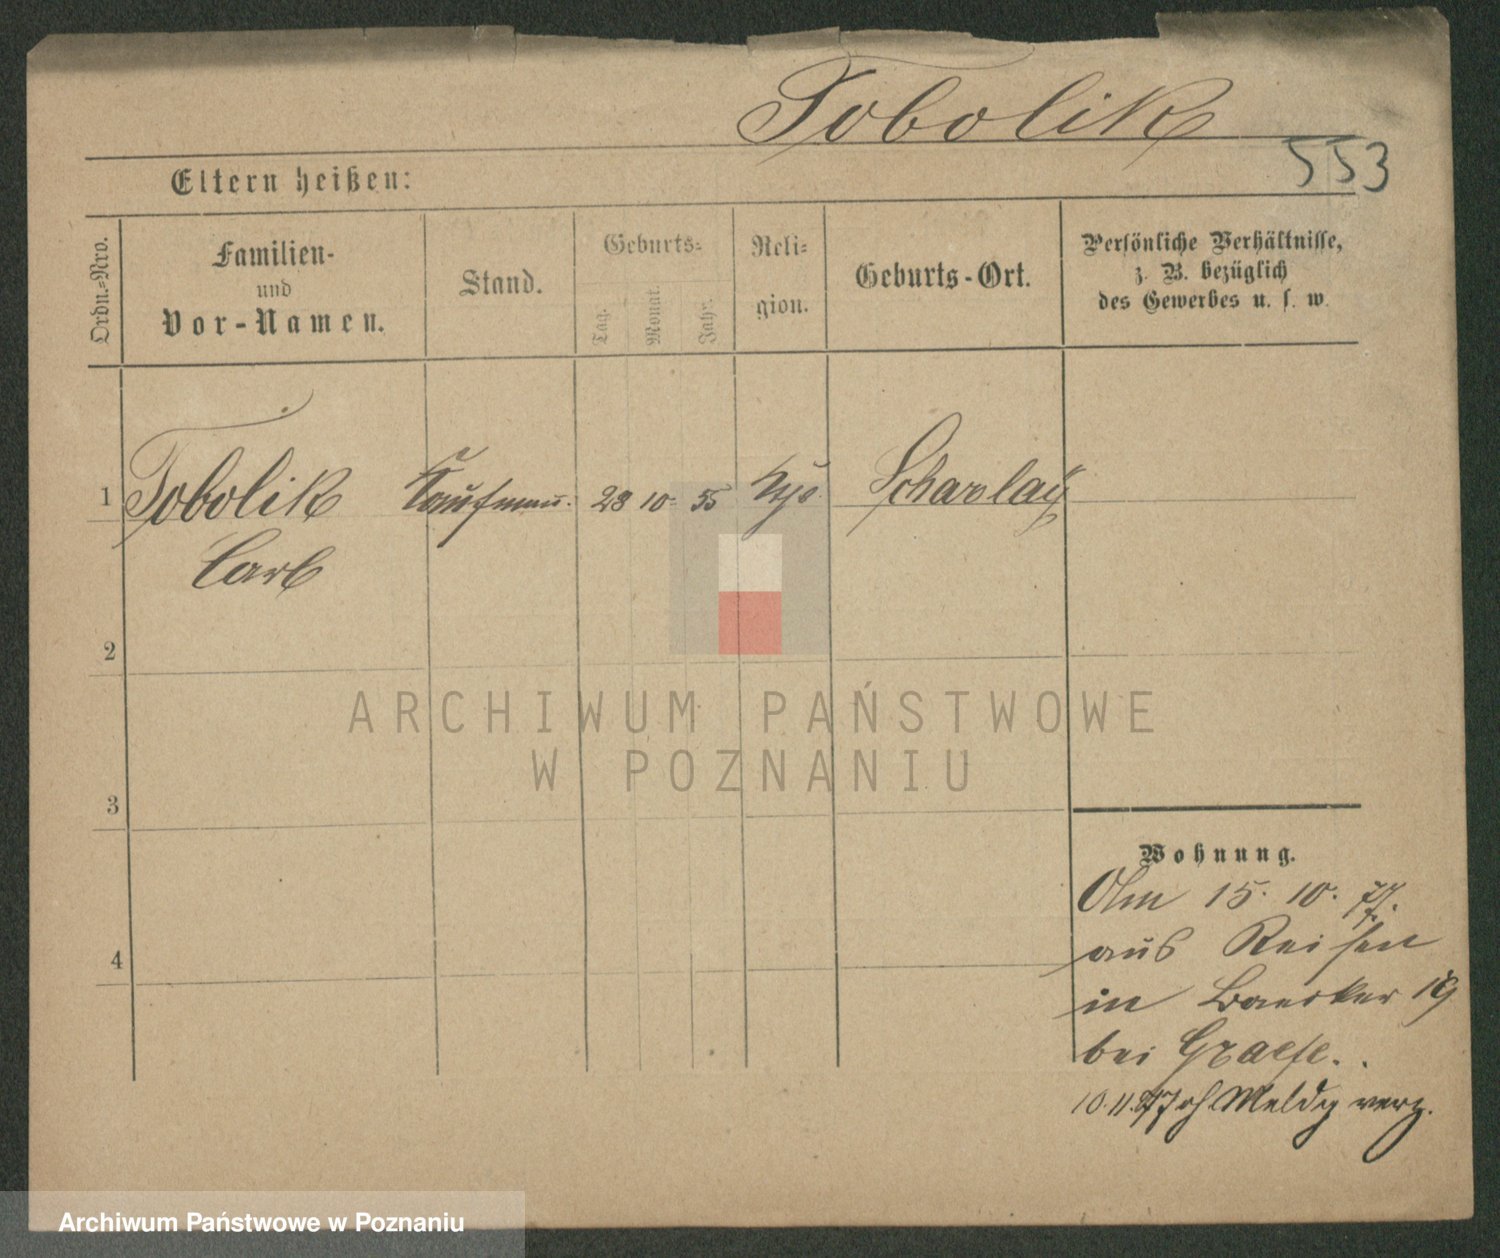 Tobolik
553
Eltern heißen:
Ordn.=Nro.
Familien-
und
Vor-Namen.
Stand.
Geburts=
Tag.
Monat.
Jahr.
Reli=
gion.
Geburts-Ort.
Persönliche Verhältnisse,
z. B. bezüglich
des Gewerbes u. s. w.
1 Tobolik Kaufmann. 28 10 55 Scharley
Carl
2
ARCHIWUM PAŃSTWOWE
W POZNANIU
3
Wohnung.
15. 10. 77.
aus Reisen
4
in Baecker 19
bei Graefe.
10.11.77 oh Meldg verz.
Archiwum Państwowe w Poznaniu